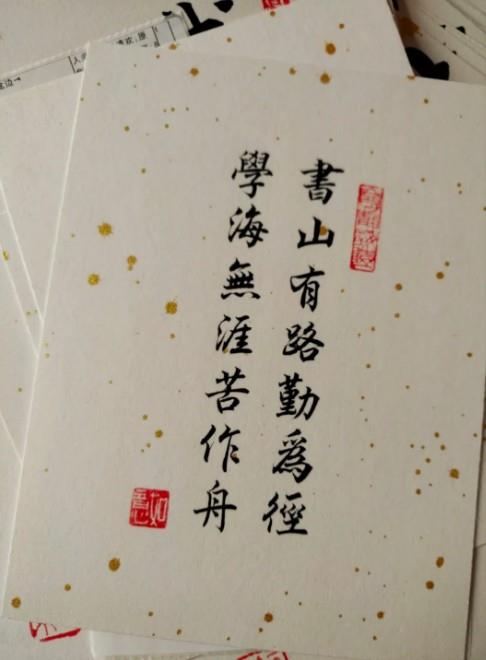 書山有路勤為徑
學海無涯苦作舟
如意